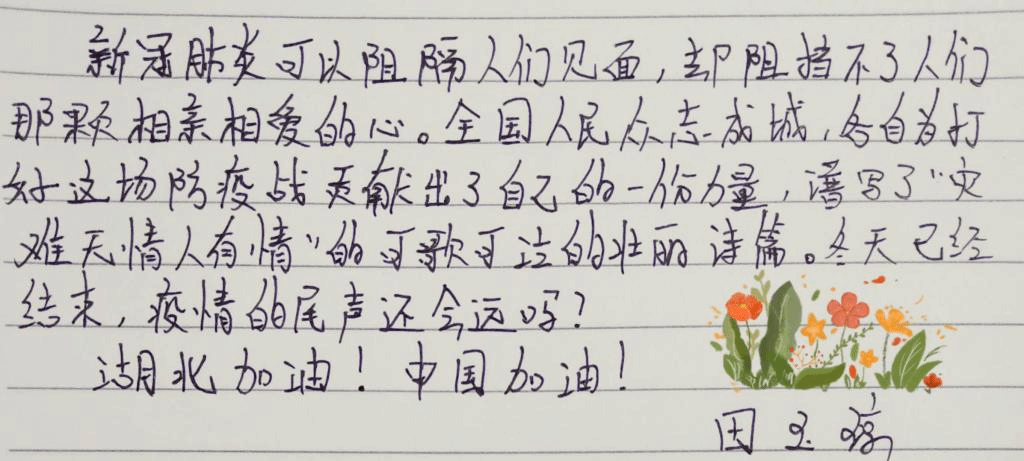 新冠肺炎可以阻隔人们见面,却阻挡不了人们
那颗相亲相爱的心。全国人民众志成城,各自为打
好这场防疫战贡献出了自己的一份力量,谱写了“灾
难无情人有情”的可歌可泣的壮丽诗篇。冬天已经
结束,疫情的尾声还会远吗?
湖北加油!中国加油!